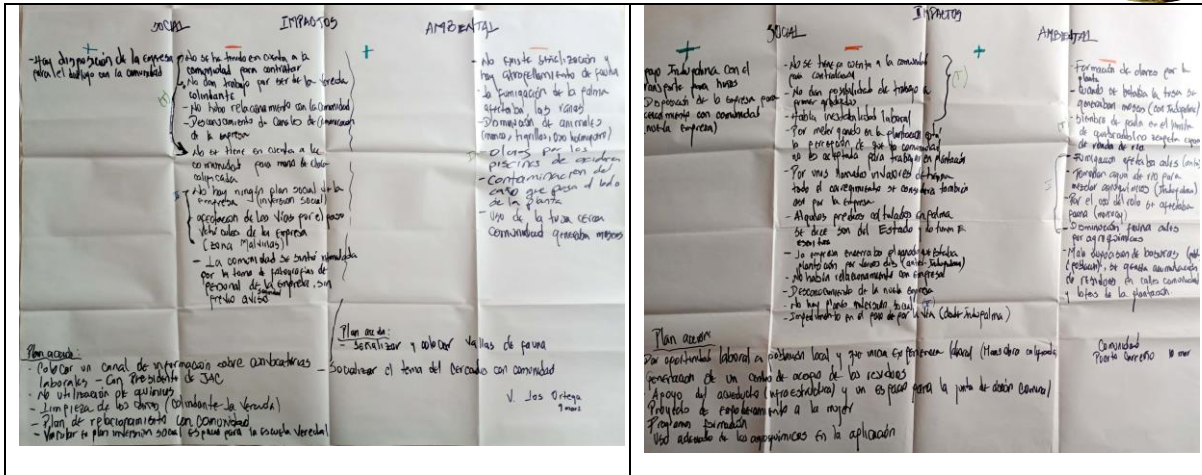 SOCIAL
IMPACTOS
AMBIENTAL
+
-
+
-
- Hay disposición de la empresa
para el diálogo con la comunidad
- No se ha tenido en cuenta a la
comunidad para contratar
- No dan trabajo por ser de la vereda
colindante
- No hubo relacionamiento con la comunidad
- Desconocimiento de canales de comunicación
de la empresa
- No se tiene en cuenta a la
comunidad para mano de obra
calificada
- No hay ningún plan social de la
empresa (inversión social)
afectación de las vías por el paso
vehículos de la empresa
(zona Malvinas)
- La comunidad se sintió intimidada
por la toma de fotografías de
personal de la empresa, sin
previo aviso
- No existe señalización y
hay atropellamiento de fauna
- la fumigación de la palma
afectaba las ranas
- Disminución de animales
- olores por las
piscinas de
- Contaminación del
caño que pasa al lado
de la planta
- Uso de la tusa cerca
comunidad generaban moscos
Plan acción:
- Colocar un canal de información sobre convocatorias
laborales - Con Presidente de JAC
- No utilización de químicos
- Limpieza de los caños (colindante la vereda)
- Plan de relacionamiento con comunidad
- Vincular en plan inversión social espacio para la escuela veredal
Plan acción:
- Señalizar y colocar vallas de fauna
- Socializar el tema del cercado con comunidad
V. Los Ortega
9 mar
IMPACTOS
SOCIAL
AMBIENTAL
+
-
+
-
Apoyo Indupalma con el
transporte para
Disposición de la empresa para
con comunidad
(nueva empresa)
- No se tiene en cuenta a la comunidad
para contratación
- No dan posibilidad de trabajo a
primer
- Había inestabilidad laboral
- Por meter ganado en la plantación está
la percepción de que la comunidad
no es aceptada para trabajar en plantación
- Por unos llamados invasores de
todo el corregimiento se considera también
así por la empresa
- Algunos predios cultivados en palma
se dice son del Estado y lo tienen
escritura
- la empresa encerraba el ganado que estaba
plantación por varios días (antes Indupalma)
- No habían relacionamiento con empresa
- Desconocimiento de la nueva empresa
- No hay planes inversión social
- Impedimento en el paso de por la vía (desde Indupalma)
- Formación de olores por la
planta
- Cuando se botaba la tusa se
generaban moscos (con Indupalma)
- Siembra de palma en el límite
de quebrada/no respeta
de ronda de río
- Fumigación afectaba aves
- Tomaban agua de río para
mezclar agroquímicos (Indupalma)
- Por el uso del se afectaba
fauna
- Disminución fauna aves
por agroquímicos
- Mala disposición de basuras
se genera acumulación
de residuos en calles comunidad
y lotes de la plantación.
Plan acción
Dar oportunidad laboral a población local y que inicia experiencia laboral (Mano obra calificada)
Generación de un centro de acopio de los residuos
Apoyo del acueducto (infraestructura) y un espacio para la junta de acción comunal
Proyecto de empoderamiento a la mujer
Programa formación
Uso adecuado de los agroquímicos en la aplicación
Comunidad
Puerto Carreño 10 mar